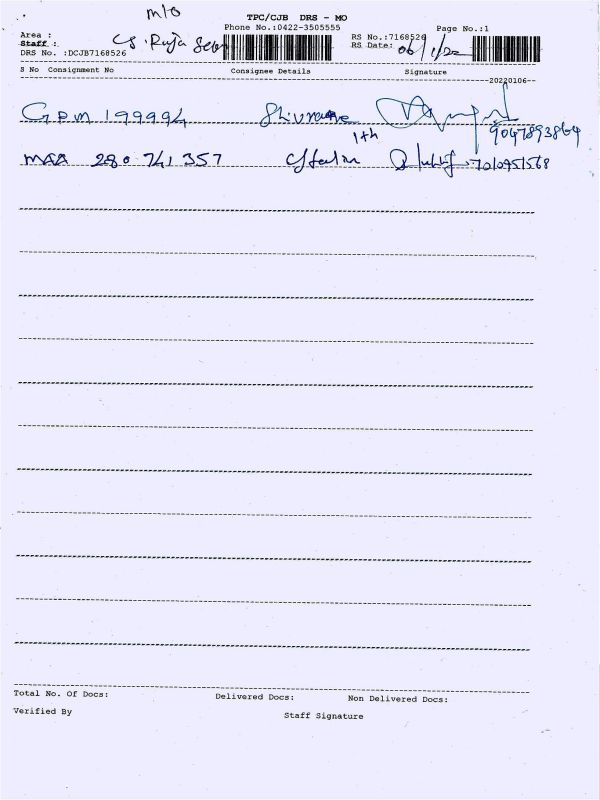 m/o
TPC/CJB DRS - MO
Phone No.:0422-3505555 Page No.:1
Area : RS No.:7168526
Staff : RS Date: 06/1/22
DRS No. :DCJB7168526
S No Consignment No Consignee Details Signature
--20220106--
GPM 199994 9047893864
1th
MAA 280 741 357 7010951568
Total No. Of Docs: Delivered Docs: Non Delivered Docs:
Verified By Staff Signature